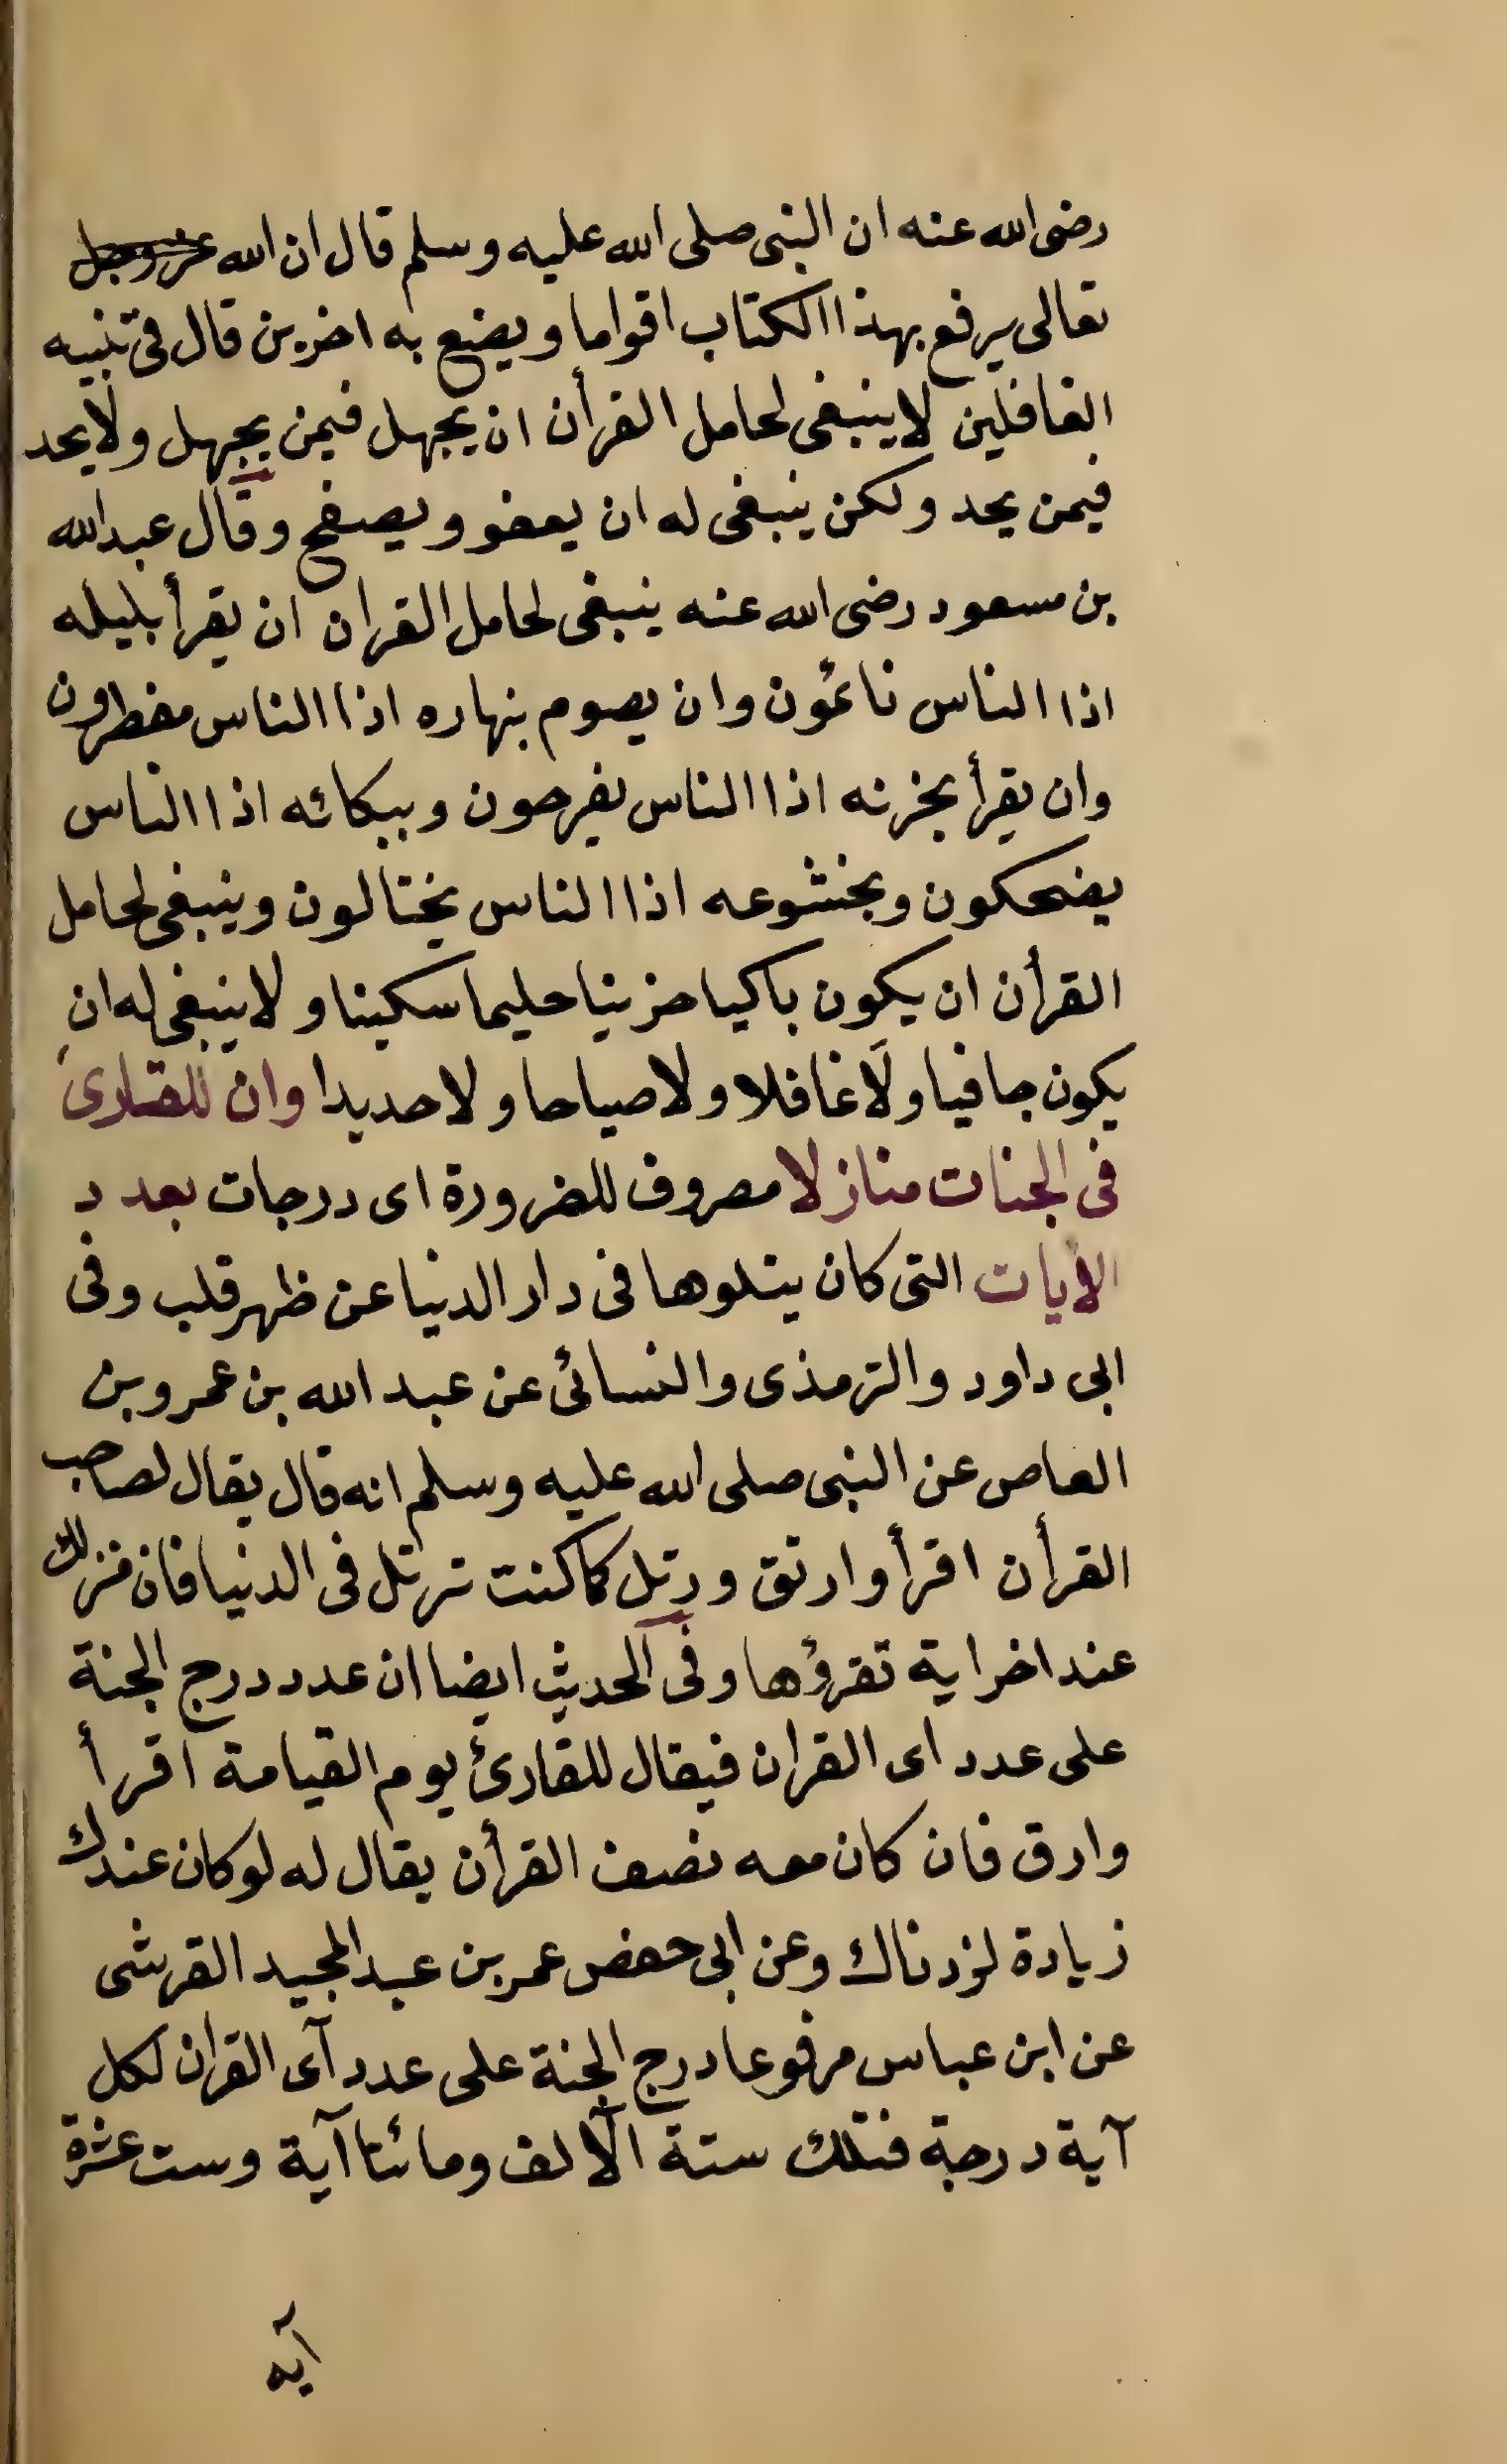 رضى الله عنه ان النبى صلى الله عليه وسلم قال ان الله عز وجل
تعالى يرفع بهذا الكتاب اقواما ويضع به اخرين قال فى تنبيه
الغافلين لا ينبغى لحامل القرأن ان يجهل فيمن يجهل ولا يحد
فيمن يحد ولكن ينبغى له ان يعفو ويصفح وقال عبد الله
بن مسعود رضى الله عنه ينبغى لحامل القران ان يقرأ بليله
اذا الناس نائمون وان يصوم بنهاره اذا الناس مفطرون
وان يقرأ بحزنه اذا الناس يفرحون وببكائه اذا الناس
يضحكون وبخشوعه اذا الناس يختالون وينبغى لحامل
القرأن ان يكون باكيا حزينا حليما سكينا ولا ينبغى له ان
يكون جافيا ولا غافلا ولا صياحا ولا حديدا وان للقارئ
فى الجنات منازلا مصروف للضرورة اى درجات بعدد
الايات التى كان يتلوها فى دار الدنيا عن ظهر قلب وفى
ابى داود والترمذى والنسائى عن عبد الله بن عمرو بن
العاص عن النبى صلى الله عليه وسلم انه قال يقال لصاحب
القرأن اقرأ وارتق ورتل كما كنت ترتل فى الدنيا فان منزلك
عند اخر اية تقرؤها وفى الحديث ايضا ان عدد درج الجنة
على عدد اى القران فيقال للقارئ يوم القيامة اقرأ
وارق فان كان معه نصف القرأن يقال له لو كان عندك
زيادة لزدناك وعن ابى حفص عمر بن عبد المجيد القرشى
عن ابن عباس مرفوعا درج الجنة على عدد آى القران لكل
آية درجة فتلك ستة آلالف ومائتا آية وست عشرة
آيه